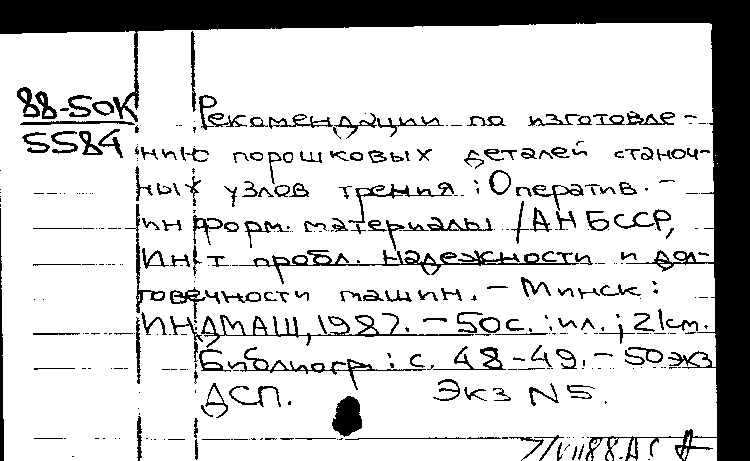 88-50К
5584
Рекомендации по изготовле-
нию порошковых деталей станоч-
ных узлов трения : Оператив.-
информ. материалы / АН БССР,
Ин-т пробл. надежности и дол-
говечности машин. - Минск :
ИНДМАШ, 1987. - 50 с. : ил. ; 21 см.
Библиогр : с. 48-49. - 50 экз
ДСП. Экз N5.